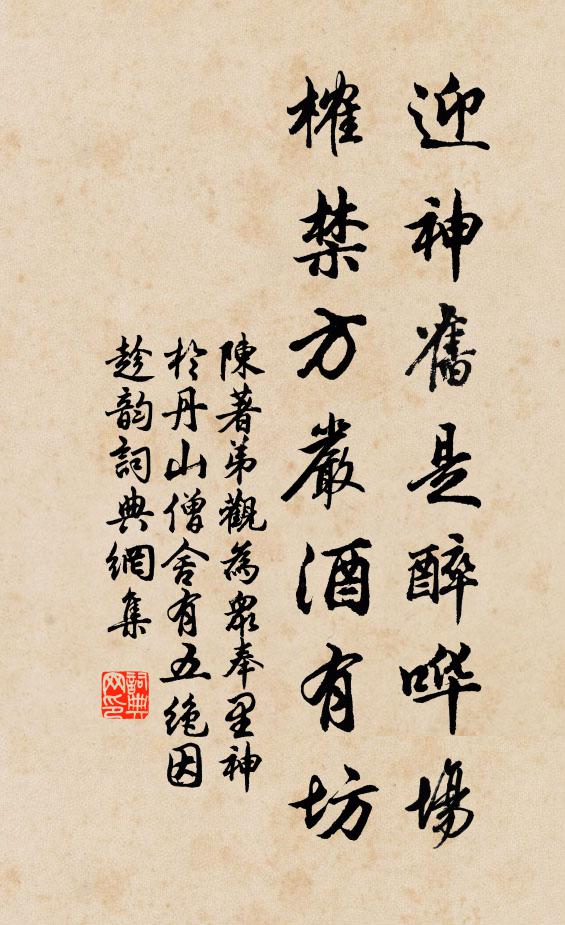 迎神舊是醉哗場
榷禁方嚴酒有坊
陳著弟觀為衆奉里神
於丹山僧舍有五绝因
趁韵詞典網集
詞典网印